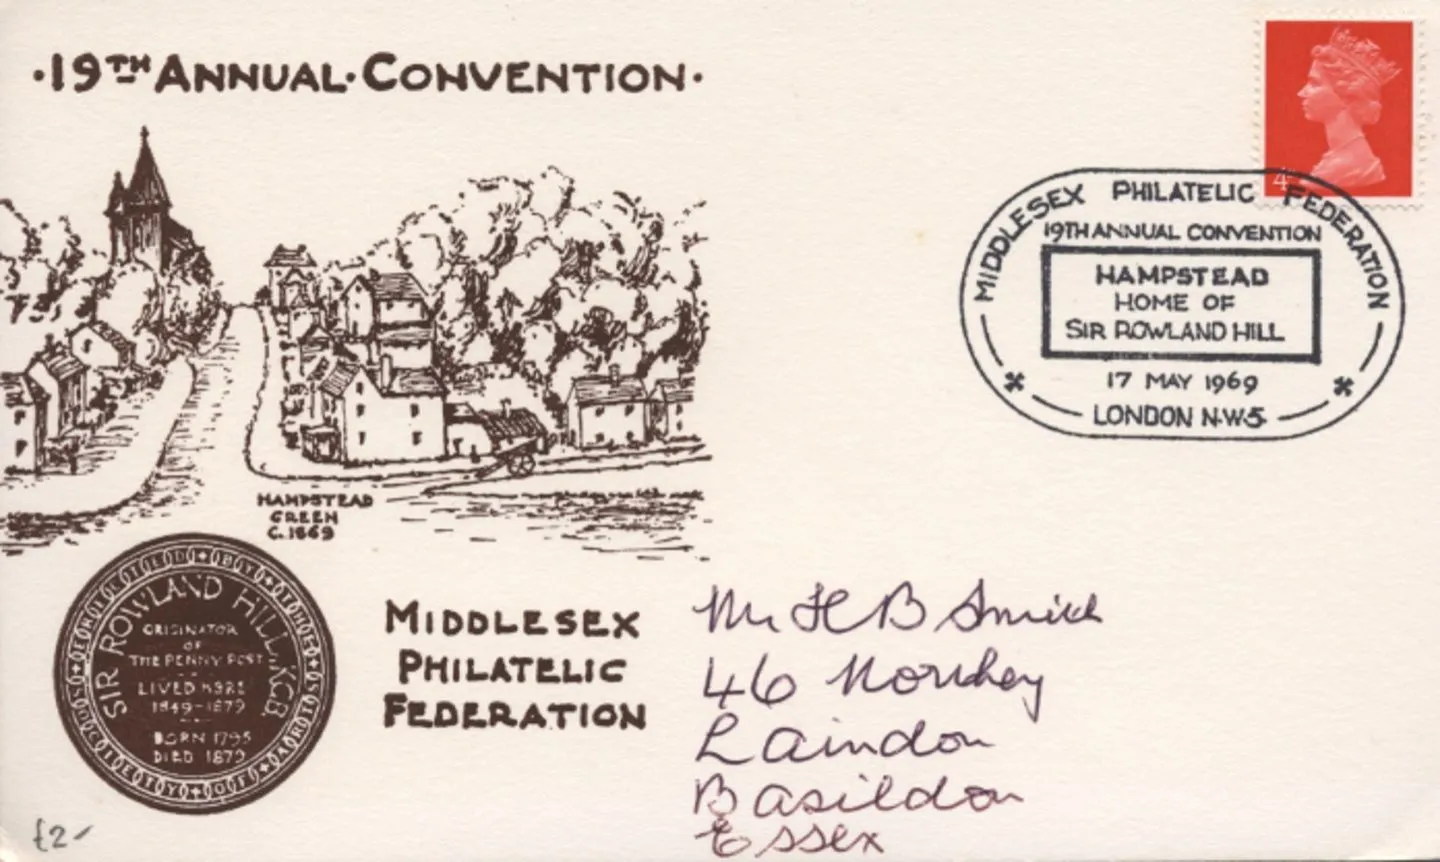 ·19TH ANNUAL·CONVENTION·
4
MIDDLESEX PHILATELIC FEDERATION
19TH ANNUAL CONVENTION
HAMPSTEAD
HOME OF
SIR ROWLAND HILL
17 MAY 1969
LONDON N·W·3
HAMPSTEAD
GREEN
C. 1869
ERECTED BY THE SOCIETY OF ARTS
SIR ROWLAND HILL, K.C.B.
ORIGINATOR
OF
THE PENNY POST
LIVED HERE
1849-1879
BORN 1795
DIED 1879
MIDDLESEX
PHILATELIC
FEDERATION
Mr H B Smith
46
Laindon
Basildon
Essex
£2-